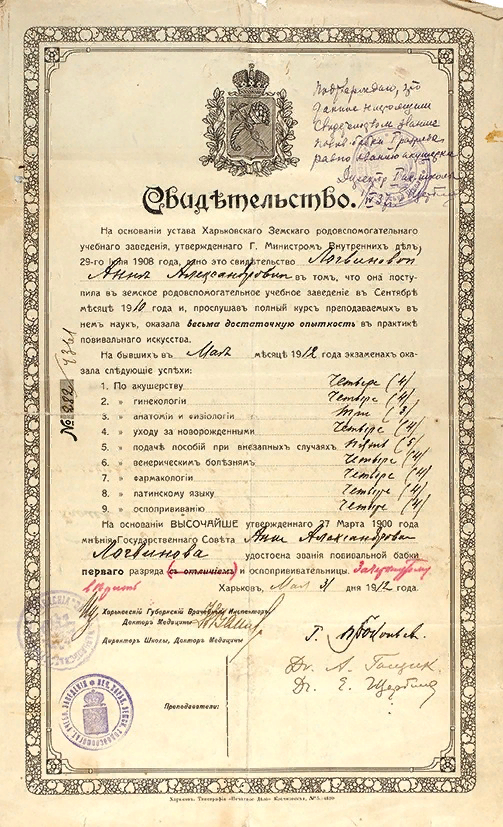 Подтверждаю, что
данное настоящим
Свидетельством звание
повив. бабки I разряда
равно званию акушерки
Директор
Свидѣтельство.
На основаніи устава Харьковскаго Земскаго родовспомогательнаго
учебнаго заведенія, утвержденнаго Г. Министромъ Внутреннихъ Дѣлъ,
29-го Іюля 1908 года, дано это свидѣтельство Логвиновой
Аннѣ Александровнѣ въ томъ, что она посту-
пила въ земское родовспомогательное учебное заведеніе въ Сентябрѣ
мѣсяцѣ 1910 года и, прослушавъ полный курсъ преподаваемыхъ въ
немъ наукъ, оказала весьма достаточную опытность въ практикѣ
повивальнаго искусства.
На бывшихъ въ Маѣ мѣсяцѣ 1912 года экзаменахъ ока-
зала слѣдующіе успѣхи:
1. По акушерству Четыре (4)
2. » гинекологіи Четыре (4)
3. » анатоміи и физіологіи Три (3)
4. » уходу за новорожденными Четыре (4)
5. » подачѣ пособій при внезапныхъ случаяхъ Пять (5)
6. » венерическимъ болѣзнямъ Четыре (4)
7. » фармакологіи Четыре (4)
8. » латинскому языку Четыре (4)
9. » оспопрививанію Четыре (4)
№ 282
На основаніи ВЫСОЧАЙШЕ утвержденнаго 27 Марта 1900 года
мнѣнія Государственнаго Совѣта Анна Александровна
Логвинова удостоена званія повивальной бабки
перваго разряда (съ отличіемъ) и оспопрививательницы.
Харьковъ, Мая 31 дня 1912 года.
Харьковскій Губернскій Врачебный Инспекторъ,
Докторъ Медицины
Директоръ Школы, Докторъ Медицины
Dr. А.
Dr. Е. Щербина
Преподаватели:
Харьковъ. Типографія «Печатное Дѣло»